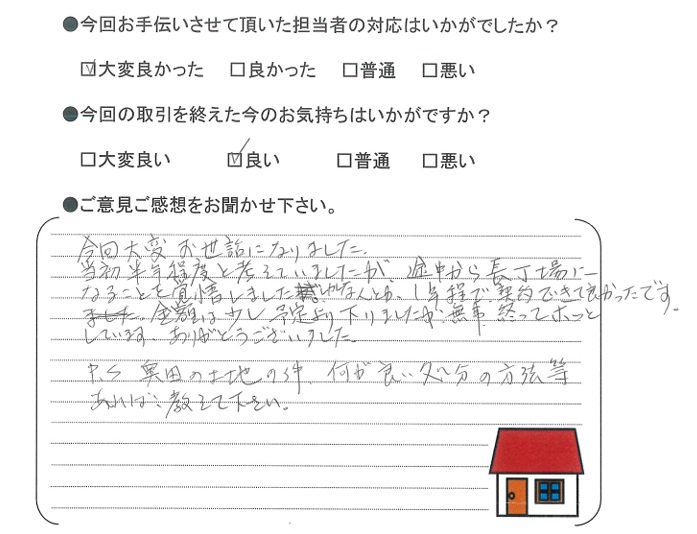 ●今回お手伝いさせて頂いた担当者の対応はいかがでしたか？
☑大変良かった □良かった □普通 □悪い
●今回の取引を終えた今のお気持ちはいかがですか？
□大変良い ☑良い □普通 □悪い
●ご意見ご感想をお聞かせ下さい。
今回大変お世話になりました。
当初半年程度と考えていましたが、途中から長丁場に
なることを覚悟しました。なんとか、1年程で契約できて良かったです。
金額は少し予定より下りましたが、無事終ってホッと
しています。ありがとうございました。
P.S 奥田の土地の件、何か良い処分の方法等
あれば、教えて下さい。